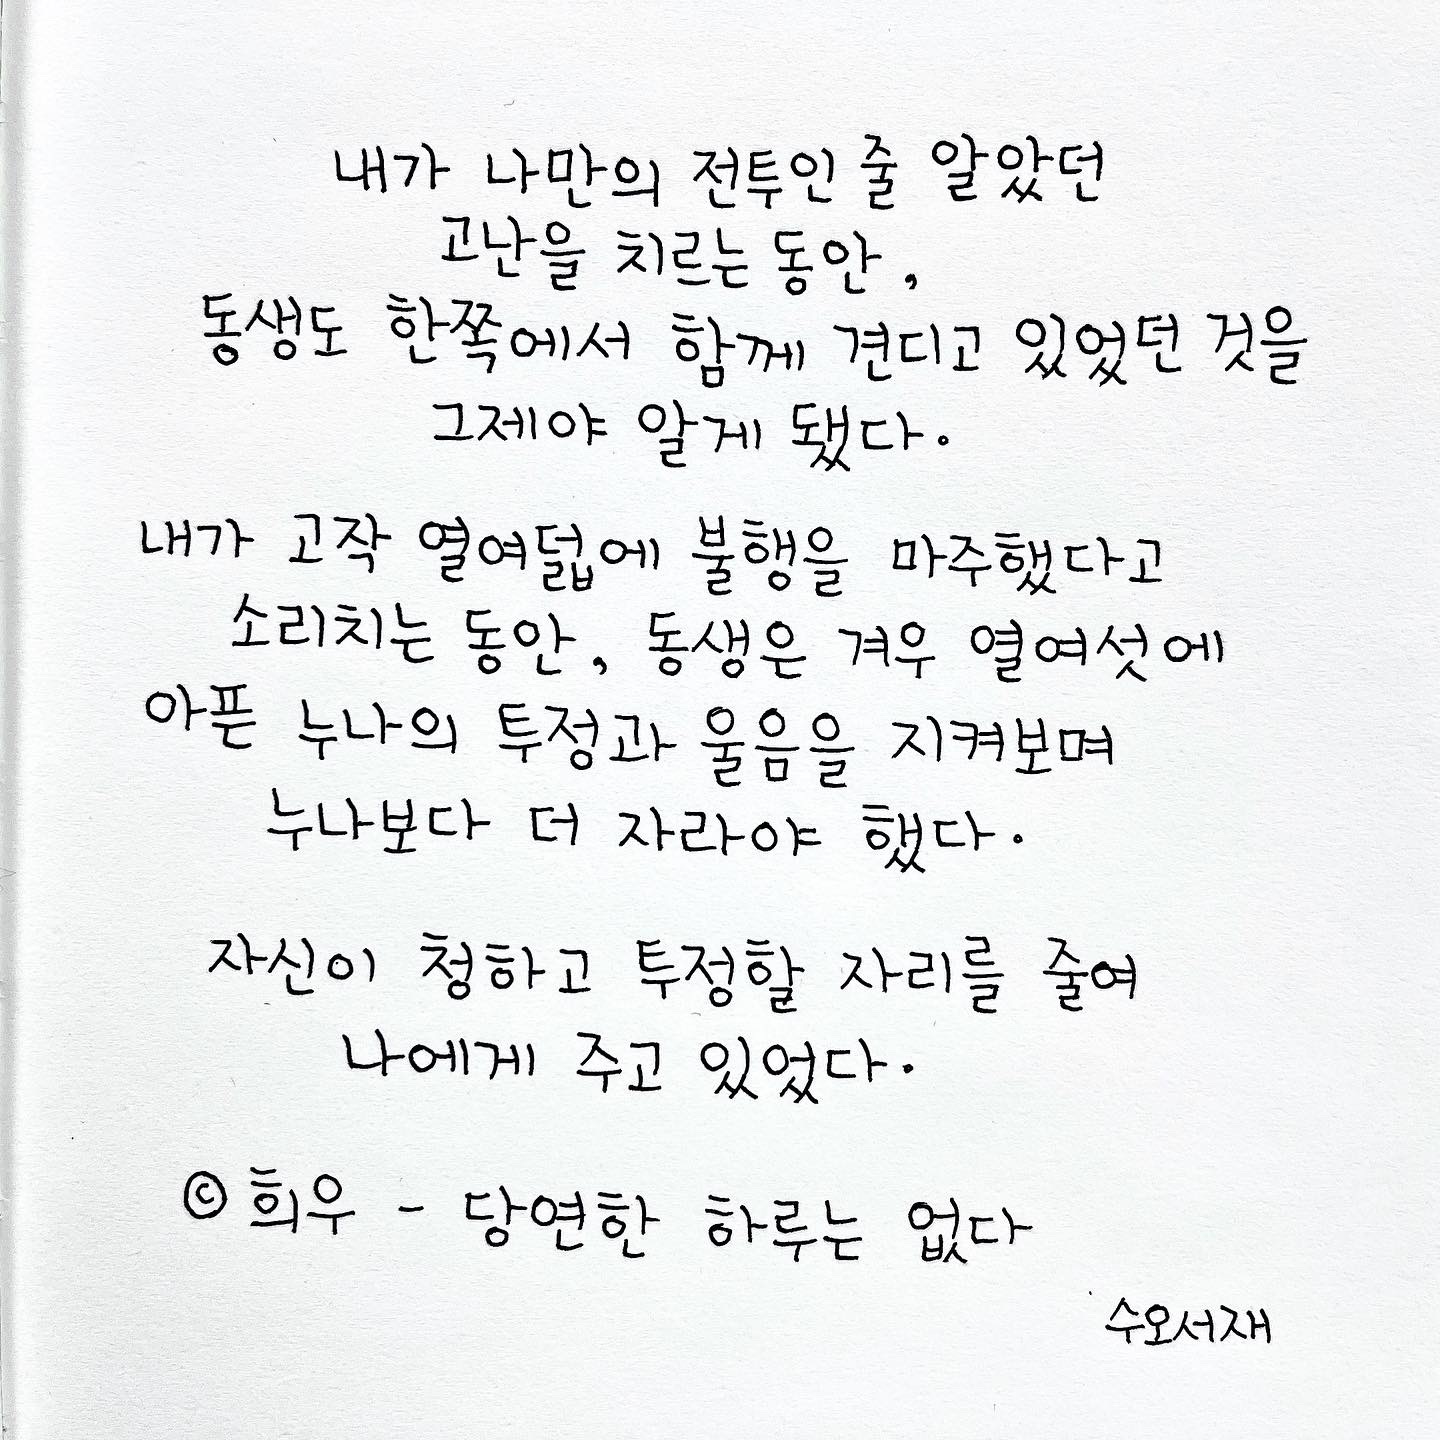 내가 나만의 전투인 줄 알았던
고난을 치르는 동안,
동생도 한쪽에서 함께 견디고 있었던 것을
그제야 알게 됐다.
내가 고작 열여덟에 불행을 마주했다고
소리치는 동안, 동생은 겨우 열여섯에
아픈 누나의 투정과 울음을 지켜보며
누나보다 더 자라야 했다.
자신이 청하고 투정할 자리를 줄여
나에게 주고 있었다.
© 희우 - 당연한 하루는 없다
수오서재